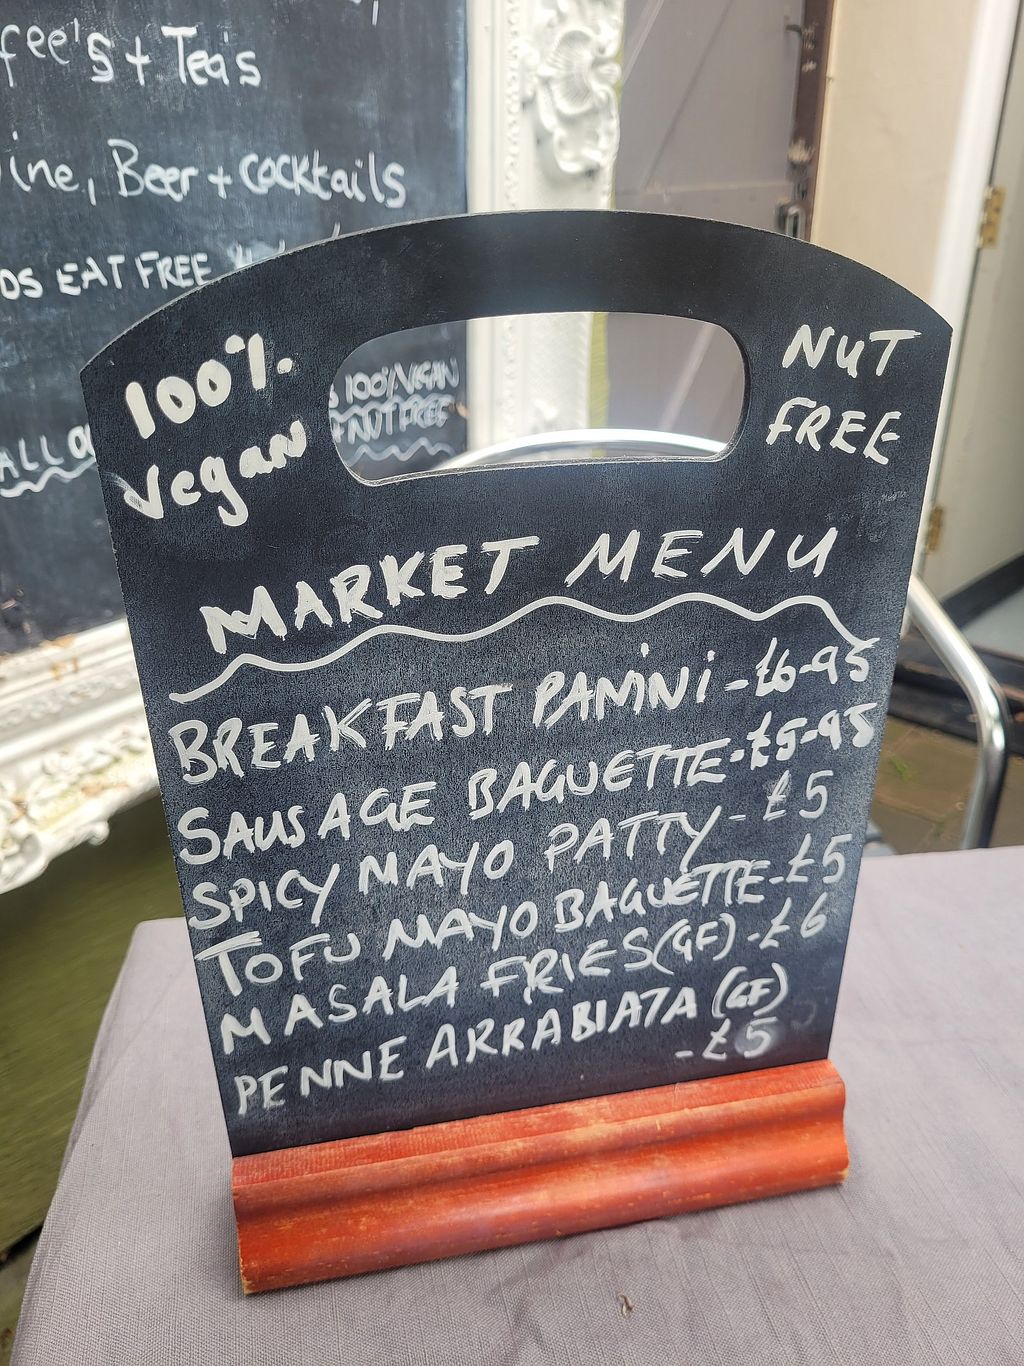 fee's + Tea's
ine, Beer + cocktails
DS EAT FREE
ALL
100% VEGAN
+ NUT FREE
100% Vegan
NUT FREE
MARKET MENU
BREAKFAST PANINI - £6-95
SAUSAGE BAGUETTE - £5-95
SPICY MAYO PATTY - £5
TOFU MAYO BAGUETTE - £5
MASALA FRIES (GF) - £6
PENNE ARRABIATA (GF)
- £5